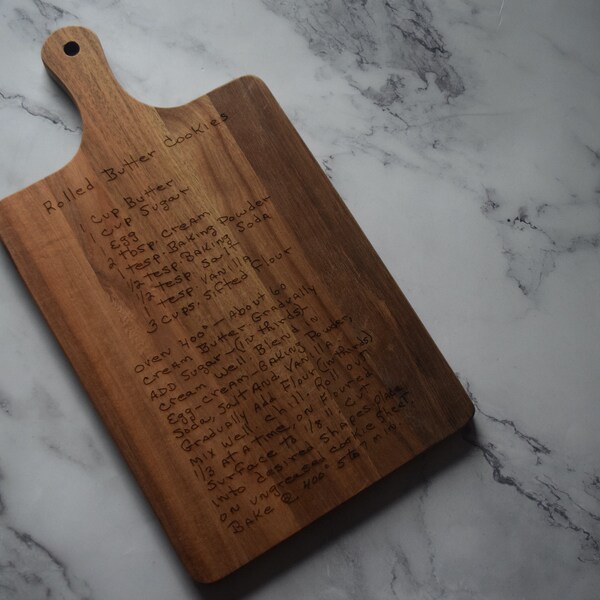 Rolled Butter Cookies
1 cup Butter
1 cup Sugar
1 Egg
2 tbsp cream
1 tesp Baking Powder
1/2 tesp Baking Soda
1/2 tesp Salt
1 tesp Vanilla
3 cups sifted Flour
Oven 400° - About 60
Cream Butter Gradually
ADD Sugar - (in thirds) -
Cream Well. Blend in
Egg - cream - Baking Powder,
Soda, Salt And Vanilla.
Gradually Add Flour (in thirds)
Mix Well. chill. Roll out
1/3 AT A time on Floured
Surface to 1/8". Cut
into desired shapes. place
on ungreased cookie sheet.
Bake @ 400° 5 to min